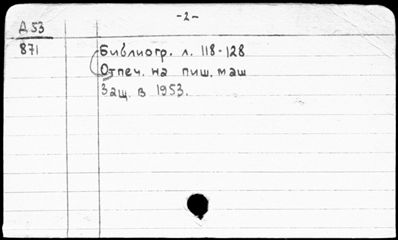 -2-
Д 53
871
Библиогр. л. 118-128
Отпеч. на пиш. маш
Защ. в 1953.